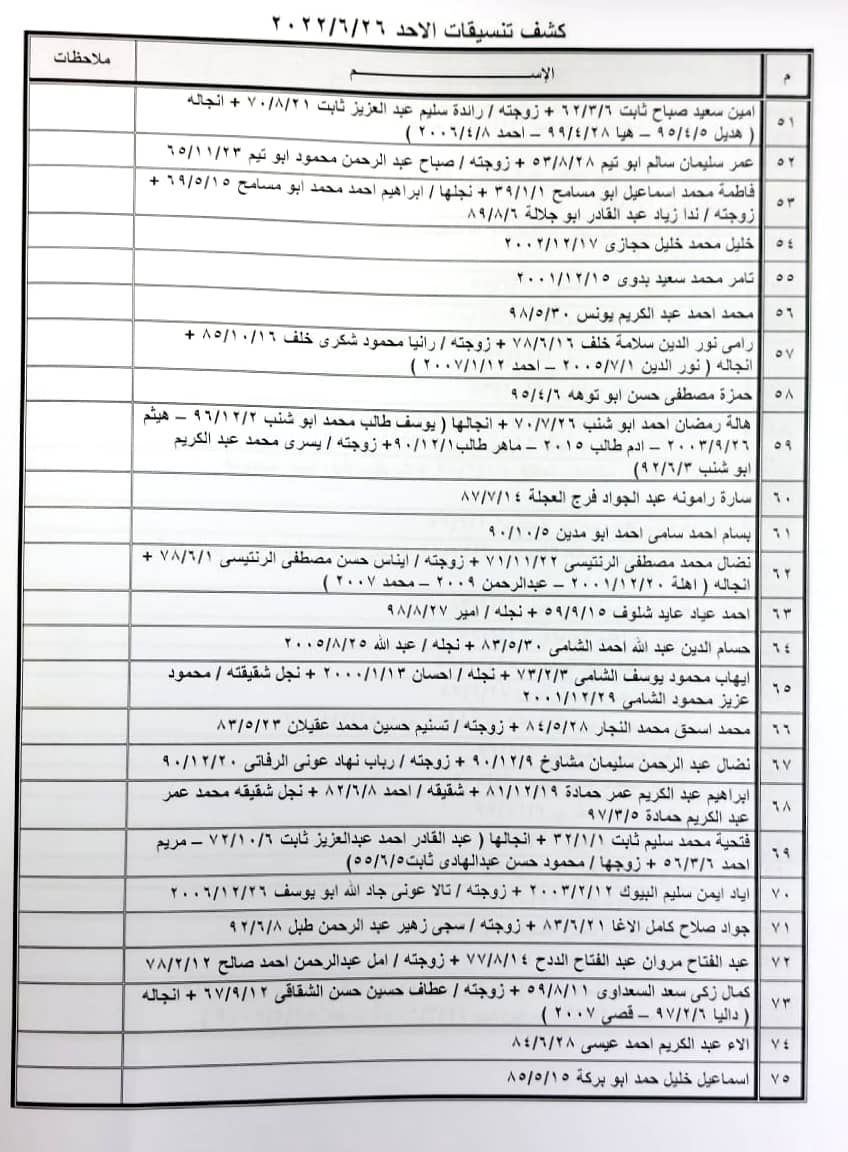 كشف تنسيقات الاحد ٢٠٢٢/٦/٢٦
م الإســـــــــم ملاحظات
٥١ امين سعيد صباح ثابت ٦٢/٣/٦ + زوجته / رائدة سليم عبد العزيز ثابت ٧٠/٨/٢١ + انجاله
( هديل ٩٥/٤/٥ – هيا ٩٩/٤/٢٨ – احمد ٢٠٠٦/٤/٨ )
٥٢ عمر سليمان سالم ابو تيم ٥٣/٨/٢٨ + زوجته / صباح عبد الرحمن محمود ابو تيم ٦٥/١١/٢٣
٥٣ فاطمة محمد اسماعيل ابو مسامح ٣٩/١/١ + نجلها / ابراهيم احمد محمد ابو مسامح ٦٩/٥/١٥ +
زوجته / ندا زياد عبد القادر ابو جلالة ٨٩/٨/٦
٥٤ خليل محمد خليل حجازى ٢٠٠٢/١٢/١٧
٥٥ تامر محمد سعيد بدوى ٢٠٠١/١٢/١٥
٥٦ محمد احمد عبد الكريم يونس ٩٨/٥/٣٠
٥٧ رامى نور الدين سلامة خلف ٧٨/٦/١٦ + زوجته / رانيا محمود شكرى خلف ٨٥/١٠/١٦ +
انجاله ( نور الدين ٢٠٠٥/٧/١ – احمد ٢٠٠٧/١/١٢ )
٥٨ حمزة مصطفى حسن ابو توهه ٩٥/٤/٦
٥٩ هالة رمضان احمد ابو شنب ٧٠/٧/٢٦ + انجالها ( يوسف طالب محمد ابو شنب ٩٦/١٢/٢ – هيثم
٢٠٠٣/٩/٢٦ – ادم طالب ٢٠١٥ – ماهر طالب ٩٠/١٢/١+ زوجته / يسرى محمد عبد الكريم
ابو شنب ٩٢/٦/٣)
٦٠ سارة رامونه عبد الجواد فرج العجلة ٨٧/٧/١٤
٦١ بسام احمد سامى احمد ابو مدين ٩٠/١٠/٥
٦٢ نضال محمد مصطفى الرنتيسى ٧١/١١/٢٢ + زوجته / ايناس حسن مصطفى الرنتيسى ٧٨/٦/١ +
انجاله ( اهلة ٢٠٠١/١٢/٢٠ – عبدالرحمن ٢٠٠٩ – محمد ٢٠٠٧ )
٦٣ احمد عياد عايد شلوف ٥٩/٩/١٥ + نجله / امير ٩٨/٨/٢٧
٦٤ حسام الدين عبد الله احمد الشامى ٨٣/٥/٣٠ + نجله / عبد الله ٢٠٠٥/٨/٢٥
٦٥ ايهاب محمود يوسف الشامى ٧٣/٢/٣ + نجله / احسان ٢٠٠٠/١/١٣ + نجل شقيقته / محمود
عزيز محمود الشامى ٢٠٠١/١٢/٢٩
٦٦ محمد اسحق محمد النجار ٨٤/٥/٢٨ + زوجته / تسنيم حسين محمد عقيلان ٨٣/٥/٢٣
٦٧ نضال عبد الرحمن سليمان مشاوخ ٩٠/١٢/٩ + زوجته / رباب نهاد عونى الرفاتى ٩٠/١٢/٢٠
٦٨ ابراهيم عبد الكريم عمر حمادة ٨١/١٢/١٩ + شقيقه / احمد ٨٢/٦/٨ + نجل شقيقه محمد عمر
عبد الكريم حمادة ٩٧/٣/٥
٦٩ فتحية محمد سليم ثابت ٣٢/١/١ + انجالها ( عبد القادر احمد عبدالعزيز ثابت ٧٢/١٠/٦ – مريم
احمد ٥٦/٣/٦ + زوجها / محمود حسن عبدالهادى ثابت٥٥/٦/٥)
٧٠ اياد ايمن سليم البيوك ٢٠٠٣/٢/١٢ + زوجته / تالا عونى جاد الله ابو يوسف ٢٠٠٦/١٢/٢٦
٧١ جواد صلاح كامل الاغا ٨٣/٦/٢١ + زوجته / سجى زهير عبد الرحمن طبل ٩٢/٦/٨
٧٢ عبد الفتاح مروان عبد الفتاح الددح ٧٧/٨/١٤ + زوجته / امل عبدالرحمن احمد صالح ٧٨/٢/١٢
٧٣ كمال زكى سعد السعداوى ٥٩/٨/١١ + زوجته / عطاف حسين حسن الشقاقى ٦٧/٩/١٢ + انجاله
( داليا ٩٧/٢/٦ – قصى ٢٠٠٧ )
٧٤ الاء عبد الكريم احمد عيسى ٨٤/٦/٢٨
٧٥ اسماعيل خليل حمد ابو بركة ٨٥/٥/١٥